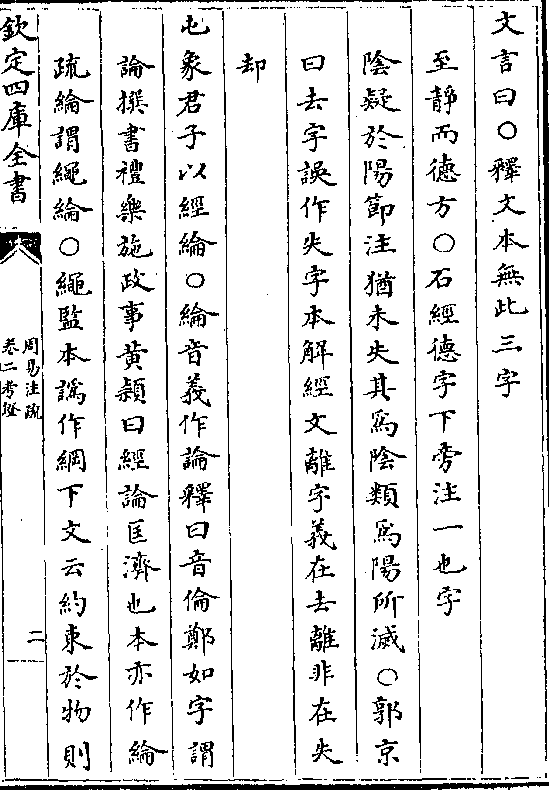 文言曰○釋文本無此三字
至靜而德方○石經德字下旁注一也字
陰疑於陽節注猶未失其爲陰類爲陽所滅○郭京
曰去字誤作失字本解經文離字義在去離非在失
却
屯象君子以經綸○綸音義作論釋曰音倫鄭如字謂
論撰書禮樂施政事黄穎曰經論匡濟也本亦作綸
疏綸謂繩綸○繩監本譌作綱下文云約束於物則
欽定四庫全書
周易注疏
卷二考證
二